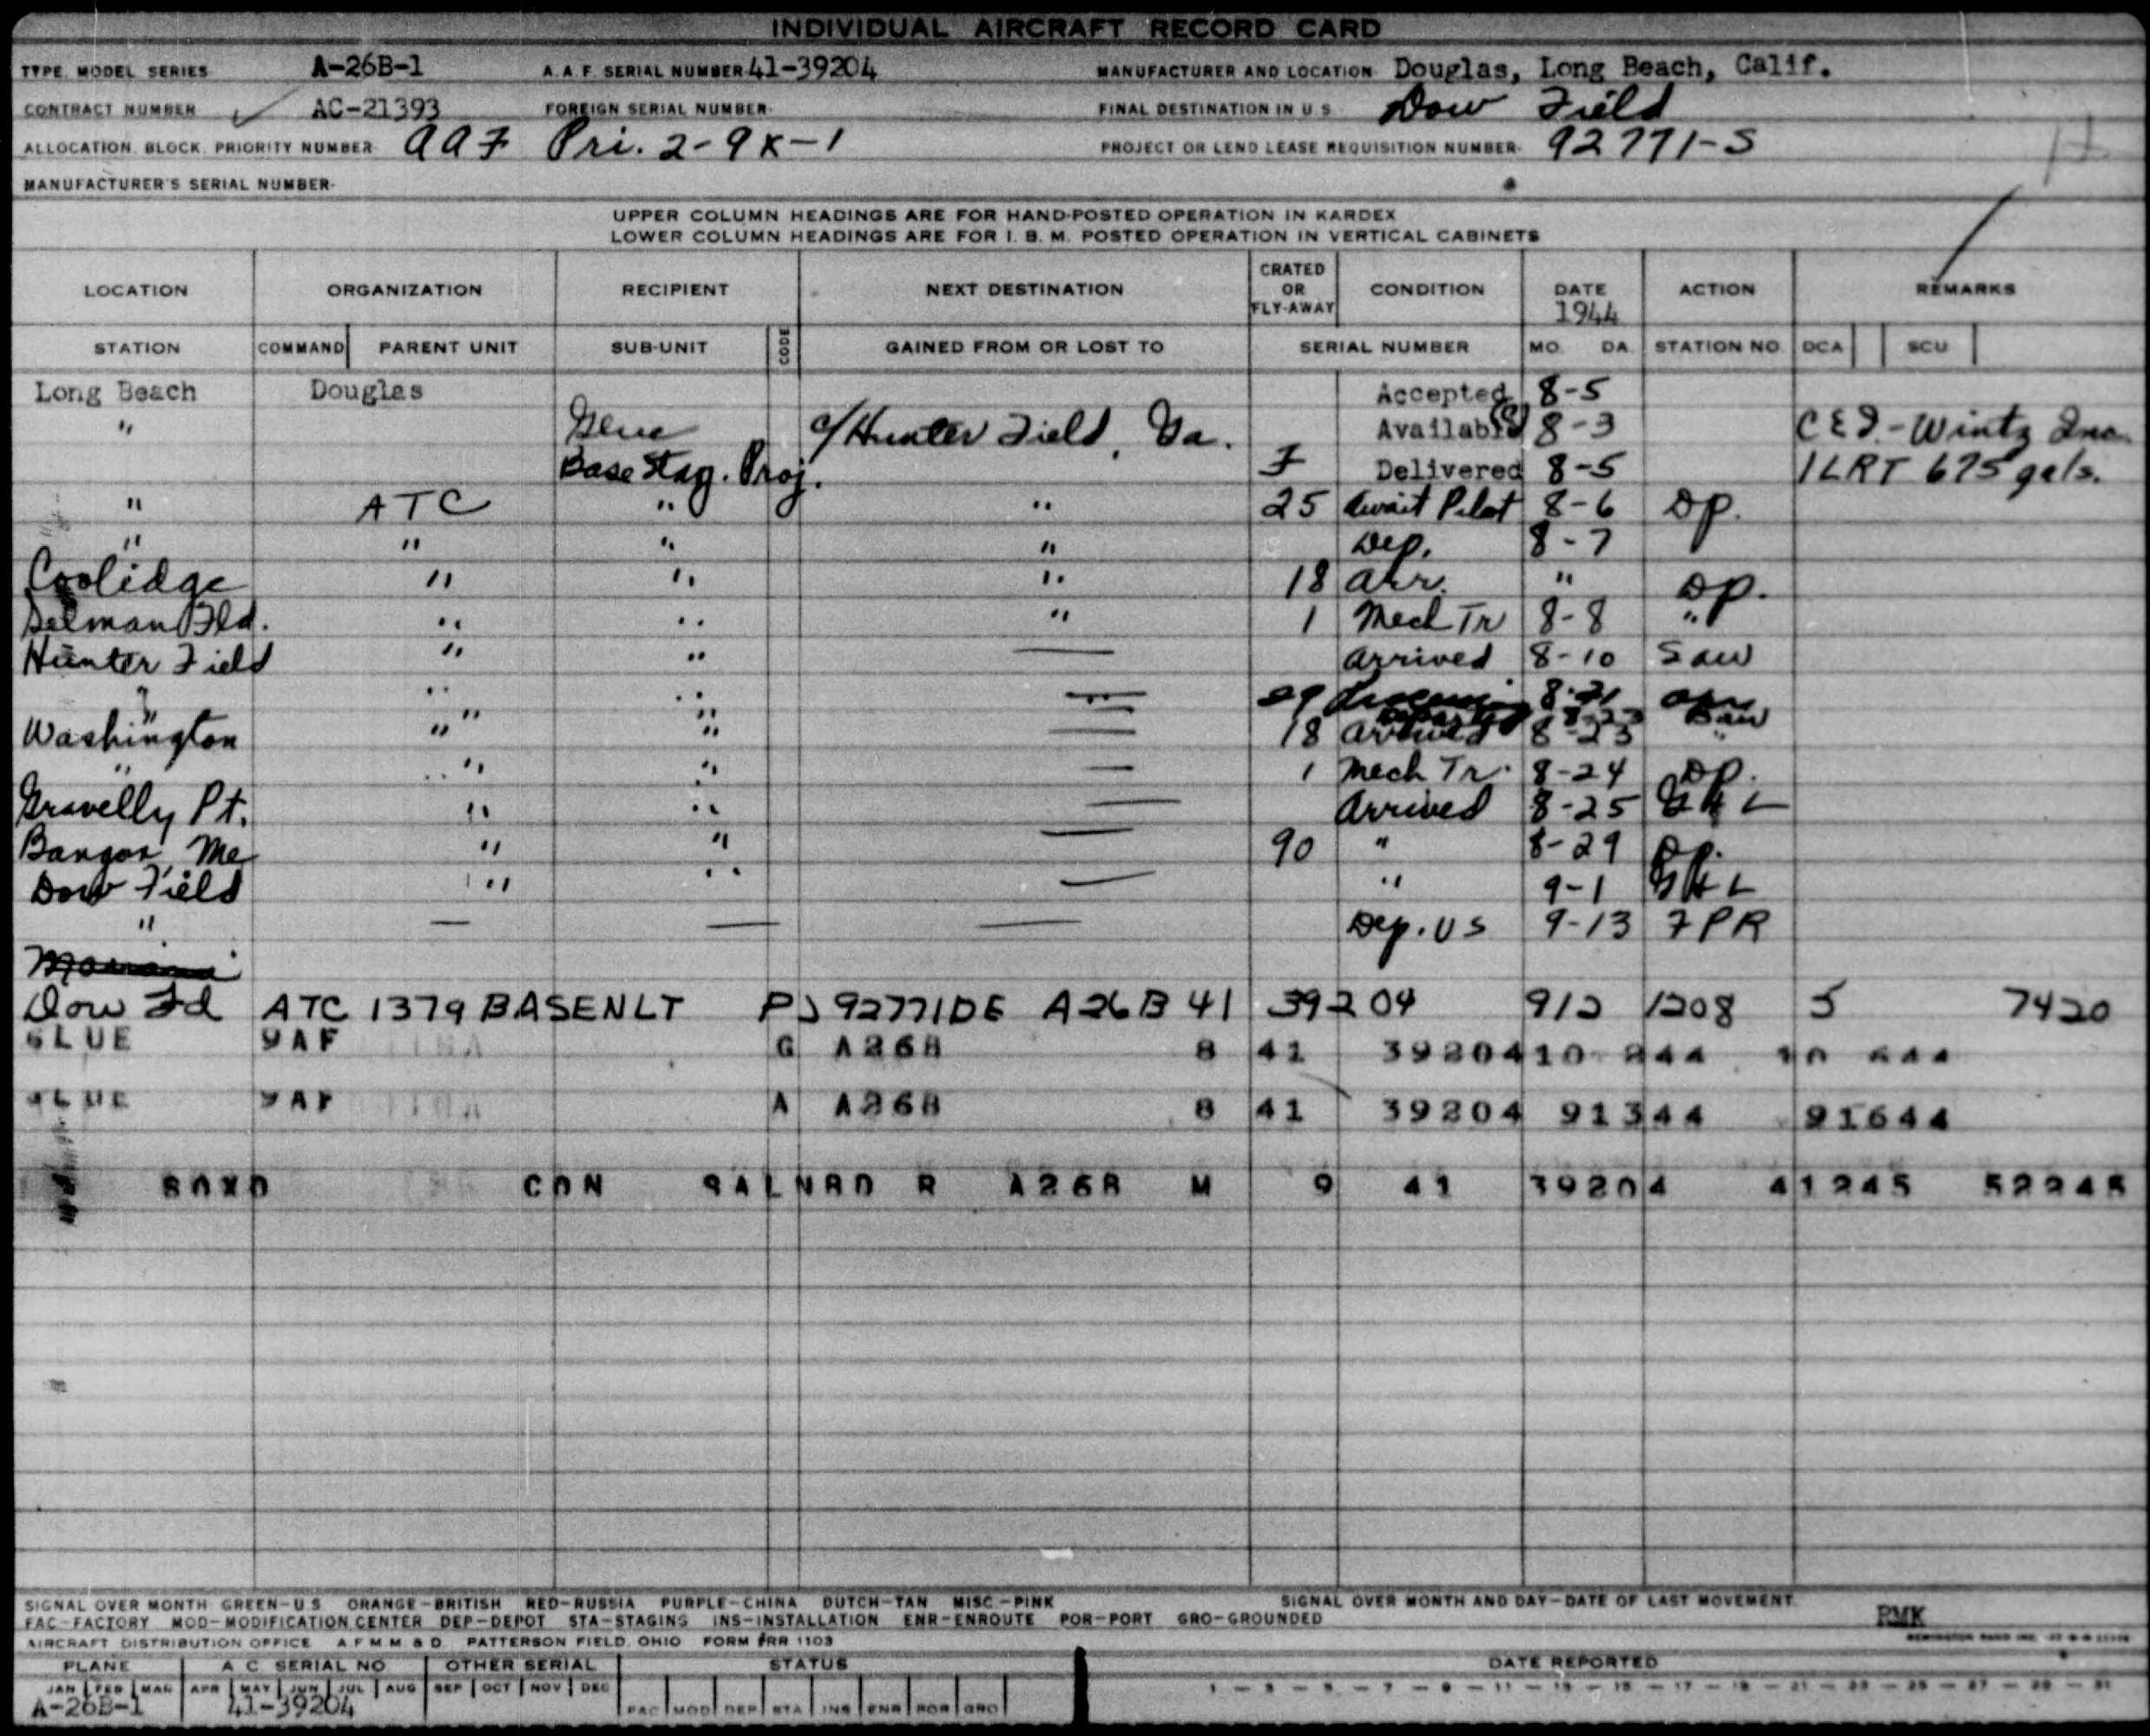 INDIVIDUAL AIRCRAFT RECORD CARD
TYPE, MODEL SERIES A-26B-1 A.A.F. SERIAL NUMBER 41-39204 MANUFACTURER AND LOCATION Douglas, Long Beach, Calif.
CONTRACT NUMBER AC-21393 FOREIGN SERIAL NUMBER- FINAL DESTINATION IN U S Dow Field
ALLOCATION, BLOCK, PRIORITY NUMBER AAF Pri. 2-9X-1 PROJECT OR LEND LEASE REQUISITION NUMBER- 92771-S
MANUFACTURER'S SERIAL NUMBER-
UPPER COLUMN HEADINGS ARE FOR HAND-POSTED OPERATION IN KARDEX
LOWER COLUMN HEADINGS ARE FOR I. B. M. POSTED OPERATION IN VERTICAL CABINETS
LOCATION ORGANIZATION RECIPIENT NEXT DESTINATION CRATED OR FLY-AWAY CONDITION DATE 1944 ACTION REMARKS
STATION COMMAND PARENT UNIT SUB-UNIT CODE GAINED FROM OR LOST TO SERIAL NUMBER MO. DA. STATION NO. DCA SCU
Long Beach Douglas Accepted 8-5
" Glue c/Hunter Field, Ga. Available 8-3 C&I.-Wintz Inc.
Base Stag. Proj. F Delivered 8-5 1LRT 675 gals.
" ATC " " 25 Await Pilot 8-6 Dp.
" " " " Dep. 8-7
Coolidge " " " 18 Arr. " Dp.
Selman Fld. " " " 1 Mech Tr 8-8 "
Hunter Field " " — Arrived 8-10 Saw
" " " — 29 8-21
" " — Departed 8-23 Saw
Washington " " — 18 Arrived 8-23 "
" " " — 1 Mech Tr. 8-24 Dp.
Gravelly Pt. " " — Arrived 8-25
Bangor, Me " " — 90 " 8-29 Dp.
Dow Field " " — " 9-1
" — — — Dep. US 9-13 FPR
Dow Fd ATC 1379 BASENLT PJ 92771DE A26B 41 39204 912 1208 5 7420
GLUE 9AF G A26B 8 41 39204 10 244 10 644
GLUE 9AF A A26B 8 41 39204 91344 91644
BOXD CON SALNBD R A26B M 9 41 39204 41245 52245
SIGNAL OVER MONTH GREEN-U S ORANGE-BRITISH RED-RUSSIA PURPLE-CHINA DUTCH-TAN MISC.-PINK SIGNAL OVER MONTH AND DAY-DATE OF LAST MOVEMENT.
FAC-FACTORY MOD-MODIFICATION CENTER DEP-DEPOT STA-STAGING INS-INSTALLATION ENR-ENROUTE POR-PORT GRO-GROUNDED RMK
AIRCRAFT DISTRIBUTION OFFICE A.F.M.M. & D. PATTERSON FIELD, OHIO FORM #RR 1103
PLANE A C SERIAL NO OTHER SERIAL STATUS DATE REPORTED
JAN FEB MAR APR MAY JUN JUL AUG SEP OCT NOV DEC
A-26B-1 41-39204 FAC MOD DEP STA INS ENR POR GRO 1 - 3 - 5 - 7 - 9 - 11 - 13 - 15 - 17 - 19 - 21 - 23 - 25 - 27 - 29 - 31